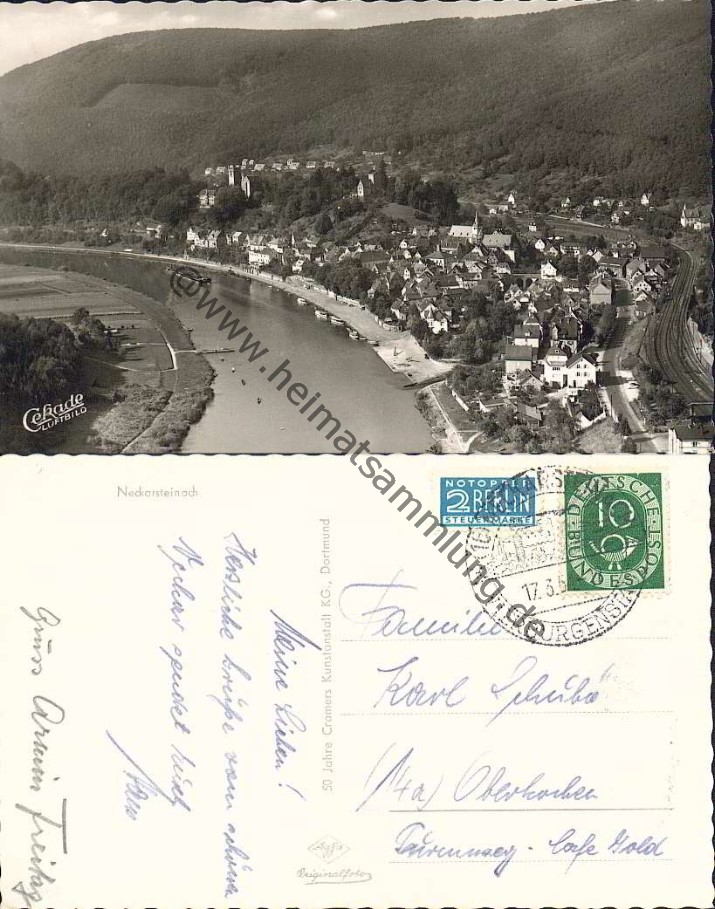 Cekade
LUFTBILD
@www.heimatsammlung.de
Neckarsteinach
50 Jahre Cramers Kunstanstalt KG., Dortmund
NOTOPFER
2 BERLIN
STEUERMARKE
DEUTSCHE
10
BUNDESPOST
17.3.5
BURGENST
Meine Lieben!
Herzliche Grüße vom schönen
Neckar sendet Euch
Gruss Armin Freitag
Familie
Karl Schuba
(14a) Oberkochen
Turmweg - Cafe Gold
Agfa
Originalfoto